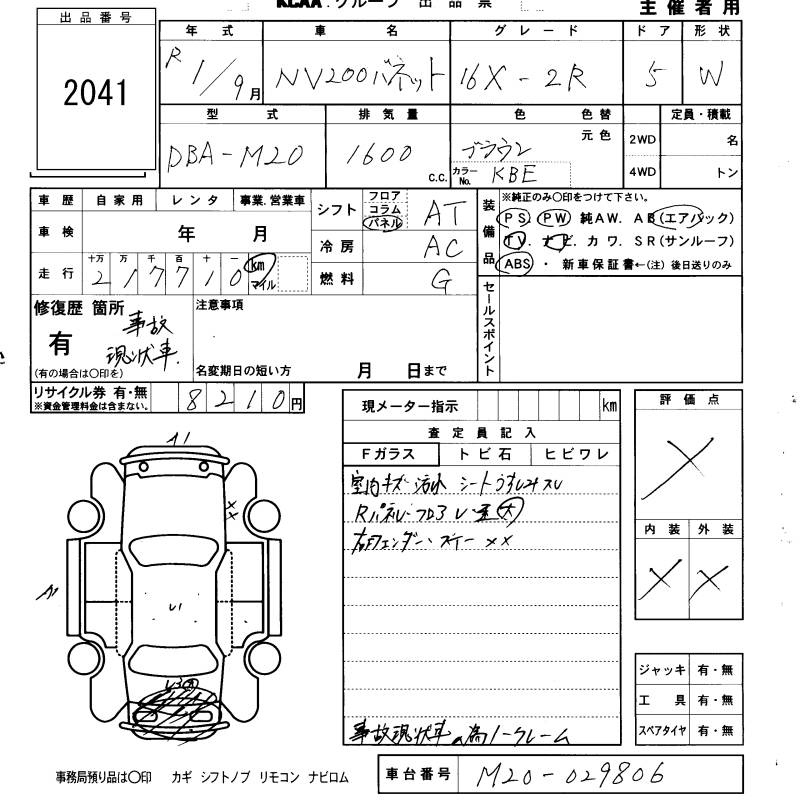 KCAA グループ 出品票
主催者用
出品番号
2041
年式 車名 グレード ドア 形状
R 1/9月 NV200バネット 16X-2R 5 W
型式 排気量 色 色替 定員・積載
元色
DBA-M20 1600 c.c. ブラウン 2WD 名
カラーNo. KBE 4WD トン
車歴 自家用 レンタ 事業.営業車
車検 年 月
走行 十万 万 千 百 十 一
2 1 7 7 1 0 km マイル
シフト フロア コラム パネル AT
冷房 AC
燃料 G
装備品
※純正のみ○印をつけて下さい。
PS. PW 純AW. AB(エアバック)
TV. ナビ. カワ. SR(サンルーフ)
ABS ・ 新車保証書←(注)後日送りのみ
修復歴 箇所
有
(有の場合は○印を)
事故
現状車.
注意事項
名変期日の短い方 月 日まで
セールスポイント
リサイクル券 有・無
※資金管理料金は含まない。
8210円
現メーター指示 km
査定員記入
Fガラス トビ石 ヒビワレ
室内キズ・汚れ シートうすレ
Rパネル・フロア 大
右Fフェンダー ××
事故現状車の為ノークレーム
評価点
×
内装 外装
× ×
ジャッキ 有・無
工具 有・無
スペアタイヤ 有・無
A1
×
×
A1
U1
U3
事務局預り品は○印 カギ シフトノブ リモコン ナビロム
車台番号 M20-029806